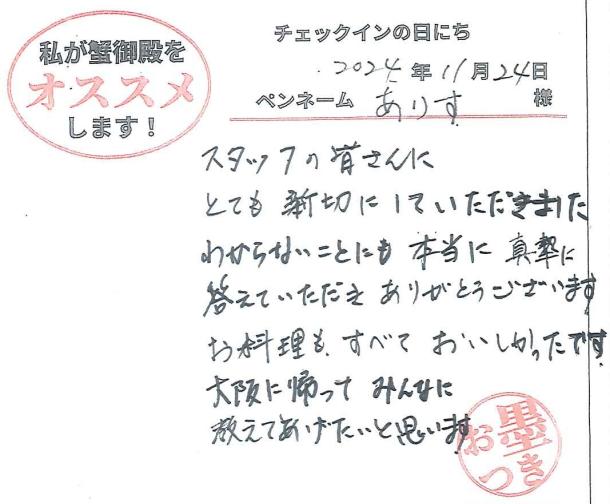 私が蟹御殿を
オススメ
します！
チェックインの日にち
2024年11月24日
ペンネーム ありす 様
スタッフの皆さんに
とても親切にしていただきました
わからないことにも 本当に 真摯に
答えていただき ありがとうございます
お料理も、すべて おいしかったです
大阪に帰って みんなに
教えてあげたいと思います
お墨つき